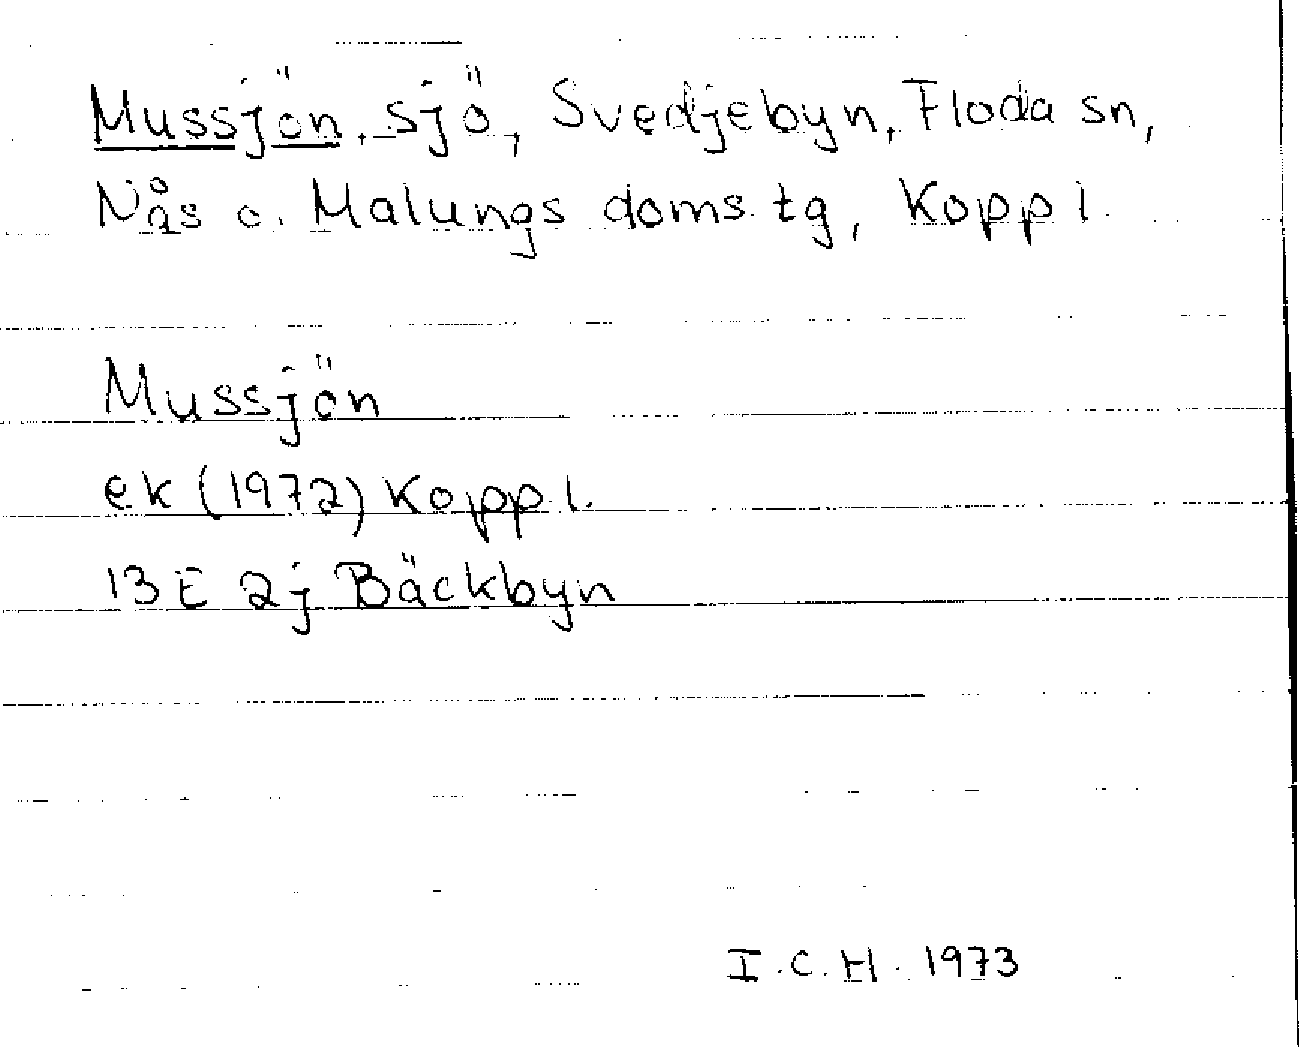 Mussjön, sjö, Svedjebyn, Floda sn,
Nås o. Malungs doms.tg, Koppl.
Mussjön
ek (1972) Koppl.
13E 2j Bäckbyn
I.C.H. 1973